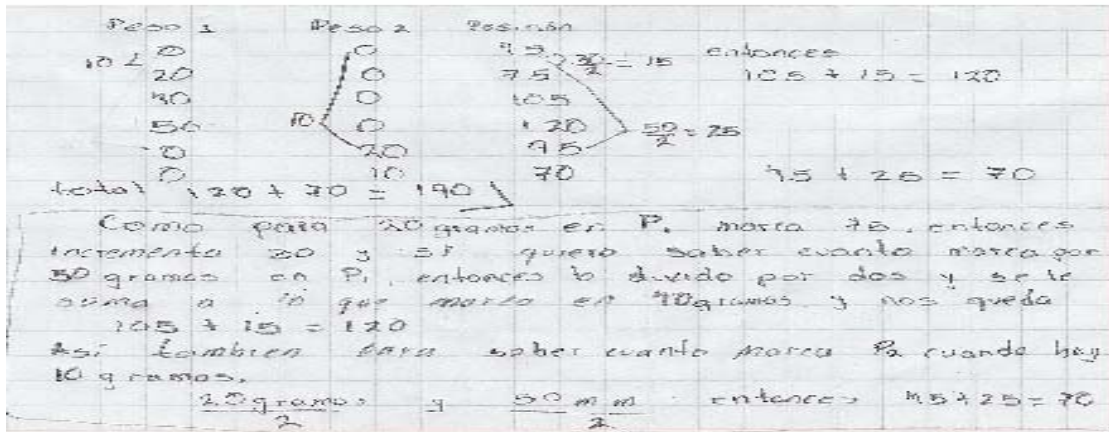 Peso 1 Peso 2 Posición
10 < 0 0 45 30/2 = 15 entonces
20 0 75 105 + 15 = 120
40 0 105
50 10 0 120 50/2 = 25
0 20 95
0 10 70 45 + 25 = 70
total 120 + 70 = 190
Como para 20 gramos en P1 marca 75, entonces
incrementa 30 y si quiero saber cuanto marca por
50 gramos en P1 entonces lo divido por dos y se le
suma a lo que marco en 40 gramos y nos queda
105 + 15 = 120
Asi tambien para saber cuanto marca P2 cuando hay
10 gramos.
20 gramos/2 y 50 mm/2 entonces 45+25=70